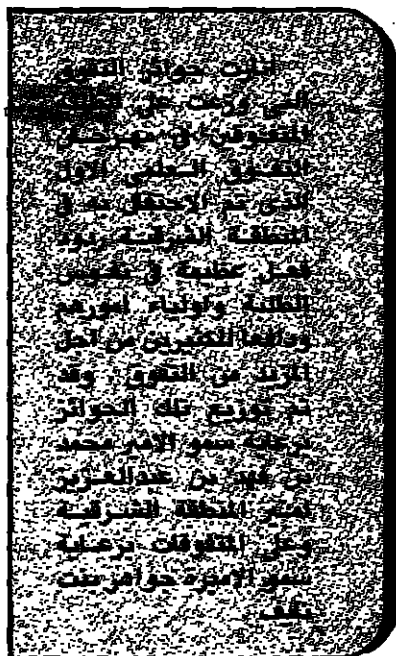 أثارت جوائز التفوق
التي وزعت على الطلبة
المتفوقين في مهرجان
التفوق العلمي الأول
الذي تم الاحتفال به في
المنطقة الشرقية ردود
فعل عظيمة في نفوس
الطلبة وأولياء أمورهم
ودافعا للكثيرين من أجل
المزيد من التفوق وقد
تم توزيع تلك الجوائز
برعاية سمو الأمير محمد
بن فهد بن عبدالعزيز
أمير المنطقة الشرقية
وعلى المتفوقات برعاية
سمو الأميرة جواهر بنت
نايف